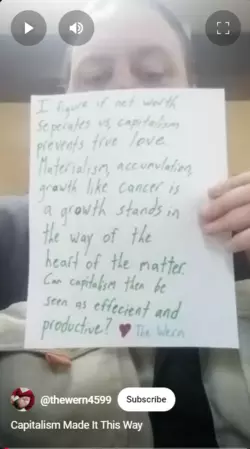 I figure if net worth
seperates us, capitalism
prevents true love.
Materialism, accumulation,
growth like cancer is
a growth stands in
the way of the
heart of the matter.
Can capitalism then be
seen as effecient and
productive? ♥ The Wern
@thewern4599
Subscribe
Capitalism Made It This Way